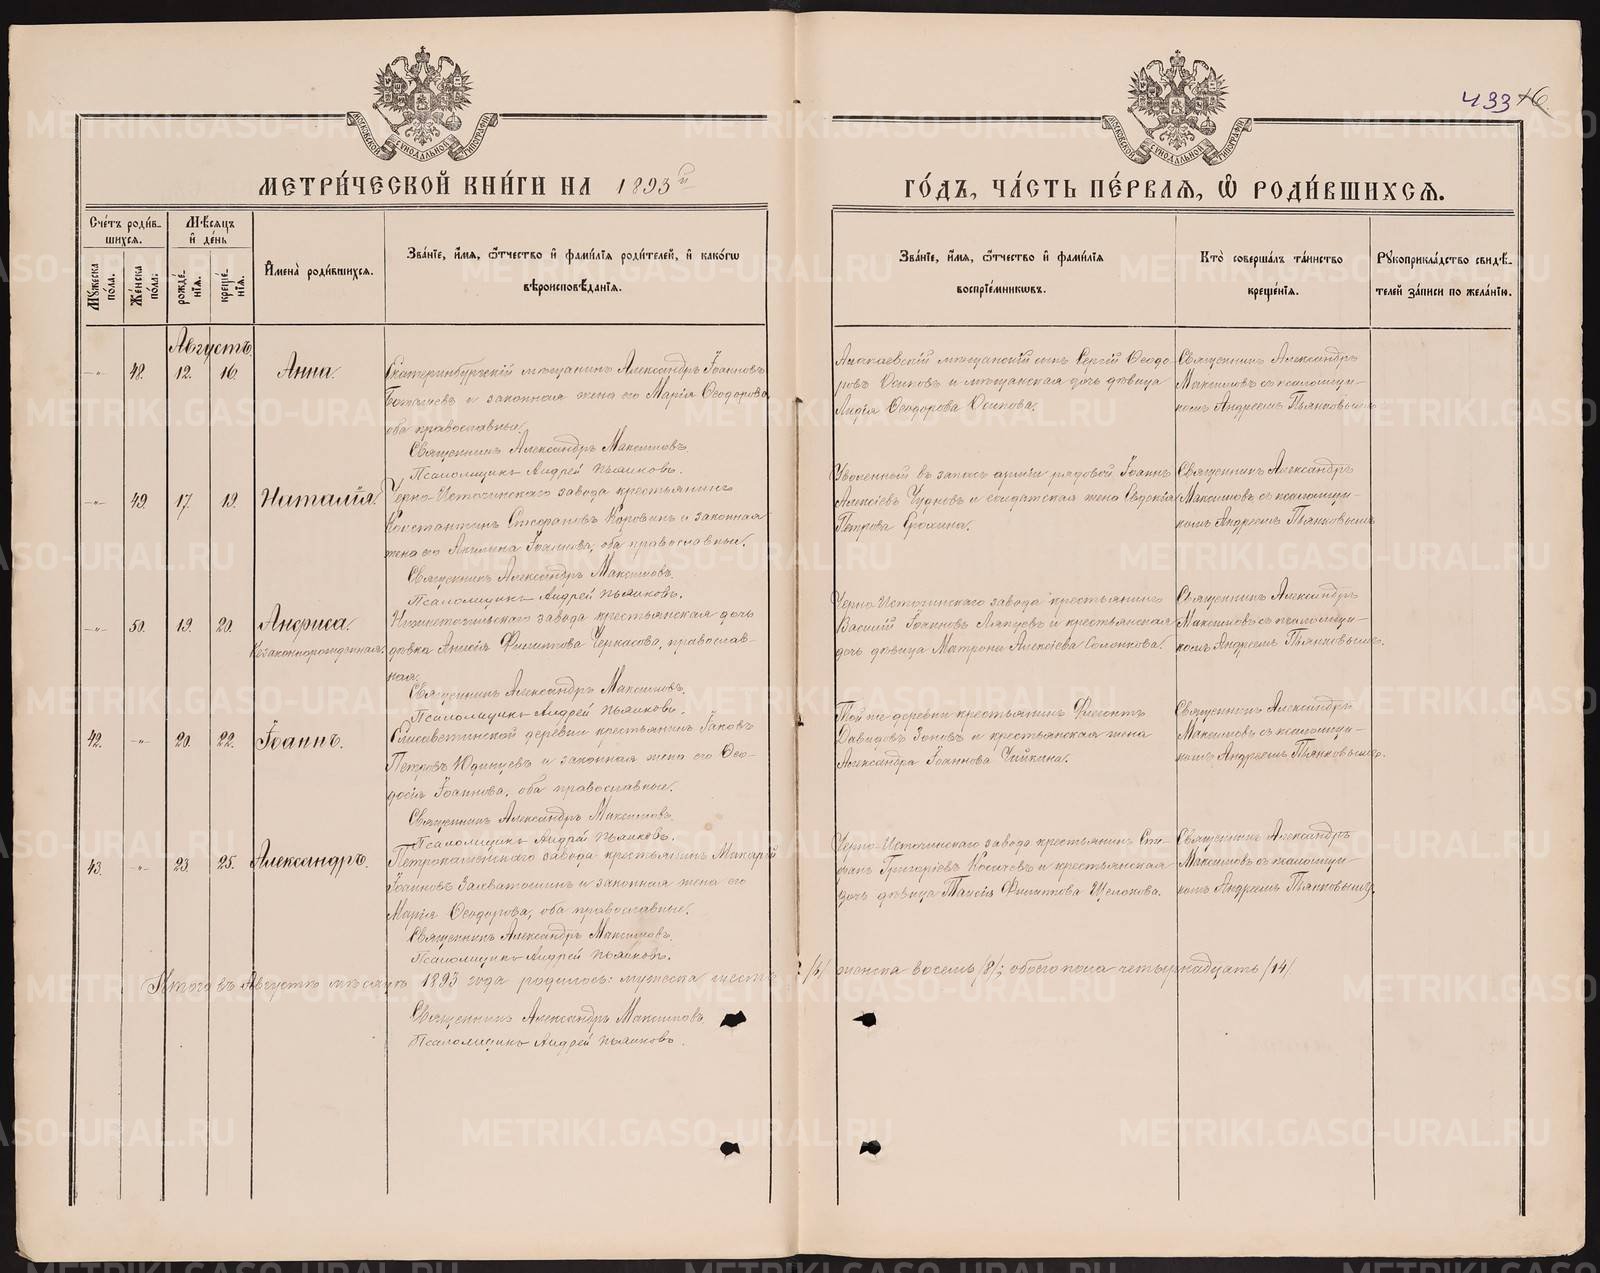 433 46
МОСКОВСКОЙ СѴНОДАЛЬНОЙ ТИПОГРАФІИ
МОСКОВСКОЙ СѴНОДАЛЬНОЙ ТИПОГРАФІИ
МЕТРИ́ЧЕСКОЙ КНИ́ГИ НА 1893й
ГО́ДЪ, ЧА́СТЬ ПЕ́РВАЯ, Ѡ РОДИ́ВШИХСЯ.
Сче́тъ роди́в-
шихся.
Мѣ́сяцъ
и де́нь
Мꙋ́жеска по́ла.
Же́нска по́ла.
рожде́-
нія.
креще́-
нія.
Имена̀ роди́вшихся.
Зва́ніе, и́мя, ѻ҆́тчество и фами́лія роди́телей, и како́гѡ
вѣроисповѣ́данія.
Зва́ніе, и́мя, ѻ҆́тчество и фами́лія
воспріе́мникѡвъ.
Кто̀ соверша́лъ та́инство
креще́нія.
Рꙋкоприкла́дство свидѣ́-
телей за́писи по жела́нію.
Августъ.
-"- 48. 12. 16. Анна.
Екатеринбургскій мѣщанинъ Александръ Іоанновъ
и законная жена его Марія Ѳеодорова,
оба православные.
Священникъ Александръ Максимовъ.
Псаломщикъ Андрей Пьянковъ.
мѣщанскій сынъ Сергій Ѳеодо-
ровъ Осиповъ и мѣщанская дочь дѣвица
Лидія Ѳеодорова Осипова.
Священникъ Александръ
Максимовъ съ псаломщи-
комъ Андреемъ Пьянковымъ
-"- 49. 17. 19. Наталія.
Черно-Источинскаго завода крестьянинъ
Константинъ Стефановъ Коровинъ и законная
жена его Іоаннова, оба православные.
Священникъ Александръ Максимовъ.
Псаломщикъ Андрей Пьянковъ.
Уволенный въ запасъ арміи рядовой Іоаннъ
Алексіевъ Чудновъ и солдатская жена Евдокія
Петрова
Священникъ Александръ
Максимовъ съ псаломщи-
комъ Андреемъ Пьянковымъ
-"- 50. 19. 20. Анфиса.
Незаконнорожденная.
Нижнетагильскаго завода крестьянская дочь
дѣвка Анисія Филиппова Черкасова, православ-
ная.
Священникъ Александръ Максимовъ.
Псаломщикъ Андрей Пьянковъ.
Черно-Источинскаго завода крестьянинъ
Василій Іоанновъ Ляпцевъ и крестьянская
дочь дѣвица Матрона Алексіева Солонкова.
Священникъ Александръ
Максимовъ съ псаломщи-
комъ Андреемъ Пьянковымъ.
42. -"- 20. 22. Іоаннъ.
Елисаветинской деревни крестьянинъ Іаковъ
Петровъ Юдинцевъ и законная жена его Ѳео-
досія Іоаннова, оба православные.
Священникъ Александръ Максимовъ.
Псаломщикъ Андрей Пьянковъ.
Той же деревни крестьянинъ Флегонтъ
Давидовъ Зоновъ и крестьянская жена
Александра Іоаннова Чийкина.
Священникъ Александръ
Максимовъ съ псаломщи-
комъ Андреемъ Пьянковымъ.
43. -"- 23. 25. Александръ.
Петрокаменскаго завода крестьянинъ Макарій
Іоанновъ Захваткинъ и законная жена его
Марія Ѳеодорова, оба православные.
Священникъ Александръ Максимовъ.
Псаломщикъ Андрей Пьянковъ.
Черно-Источинскаго завода крестьянинъ Сте-
фанъ Григоріевъ Косачевъ и крестьянская
дочь дѣвица Таисія Филиппова Щелокова.
Священникъ Александръ
Максимовъ съ псаломщи-
комъ Андреемъ Пьянковымъ.
Итого въ Августѣ мѣсяцѣ 1893 года родилось: мужеска шесть /6/ женска восемь /8/; обоего пола четырнадцать /14/
Священникъ Александръ Максимовъ.
Псаломщикъ Андрей Пьянковъ.
METRIKI.GASO-URAL.RU